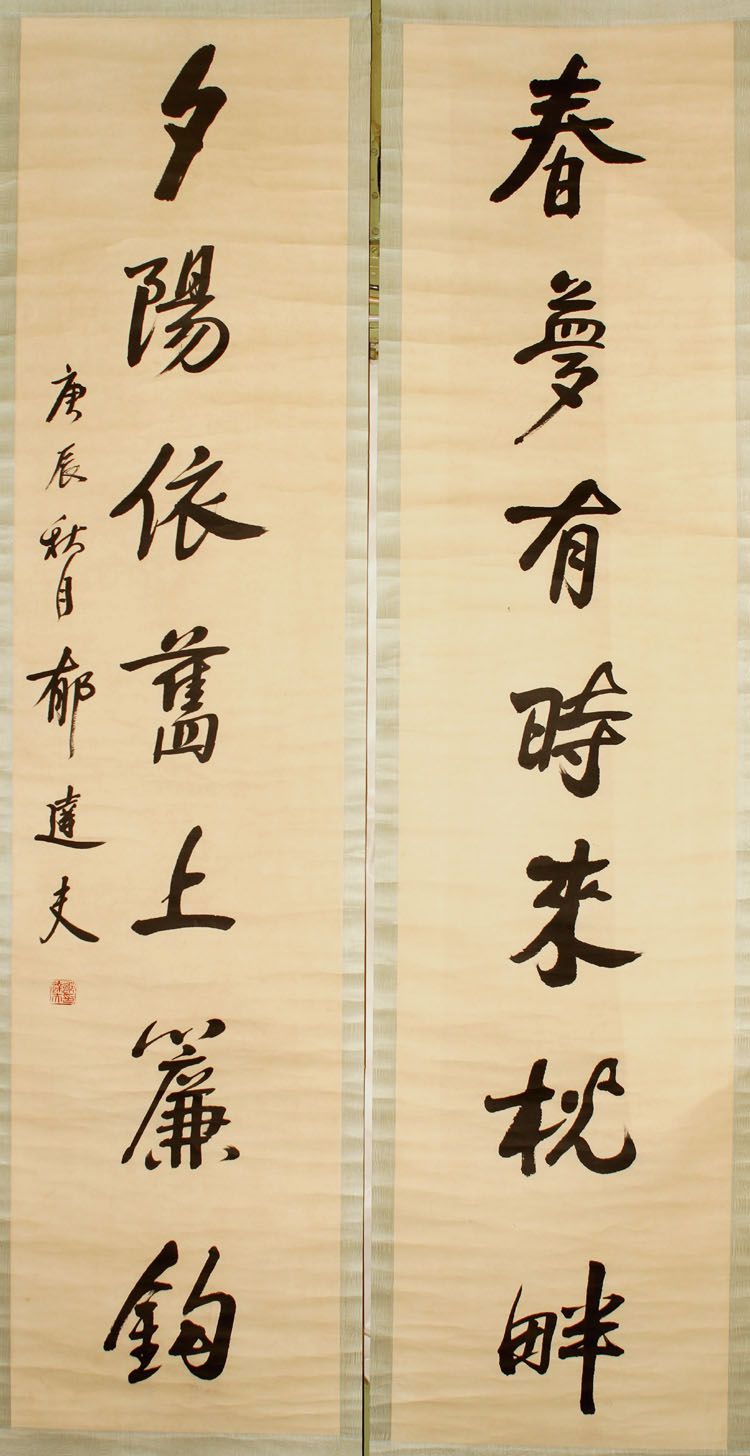 春夢有時來枕畔
夕陽依舊上簾鈎
庚辰秋月郁達夫